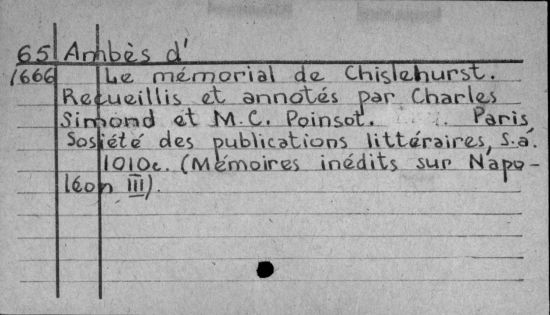 65 Ambès d'
1666 Le mémorial de Chislehurst.
Recueillis et annotés par Charles
Simond et M.C. Poinsot. Paris,
Sosiété des publications littéraires, s.a.
1010c. (Mémoires inédits sur Napo-
léon III).